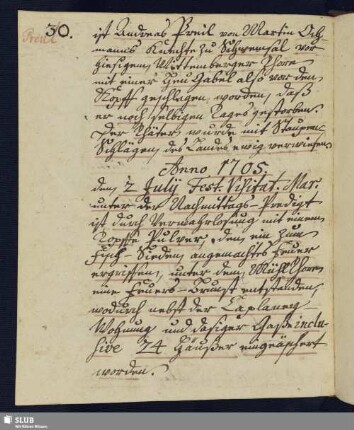 30.
Preil
ist Andreas Preil von Martin Och-
manns Knechte zu Schwemsal vor
hiesigem Wittenberger Thore
mit einer Heu Gabel also vor den
Kopff geschlagen worden, daß
er noch selbigen Tages gestorben.
Der Thäter wurde mit Staupen-
Schlägen des Landes ewig verwiesen
Anno 1705.
den 2 July Fest. Visitat. Mar.
unter der Nachmittags-Predigt
ist durch Verwahrlosung mit einem
Topffe Pulver, dem ein zum
Fisch-Sieden angemachtes Feuer
ergriffen, unter dem Mühl Thore
eine Feuers-Brunst entstanden
wodurch nebst der Caplaney
Wohnung und dasiger Gaße inclu-
sive 24 Häußer eingeäschert
worden.
SLUB
Wir führen Wissen.